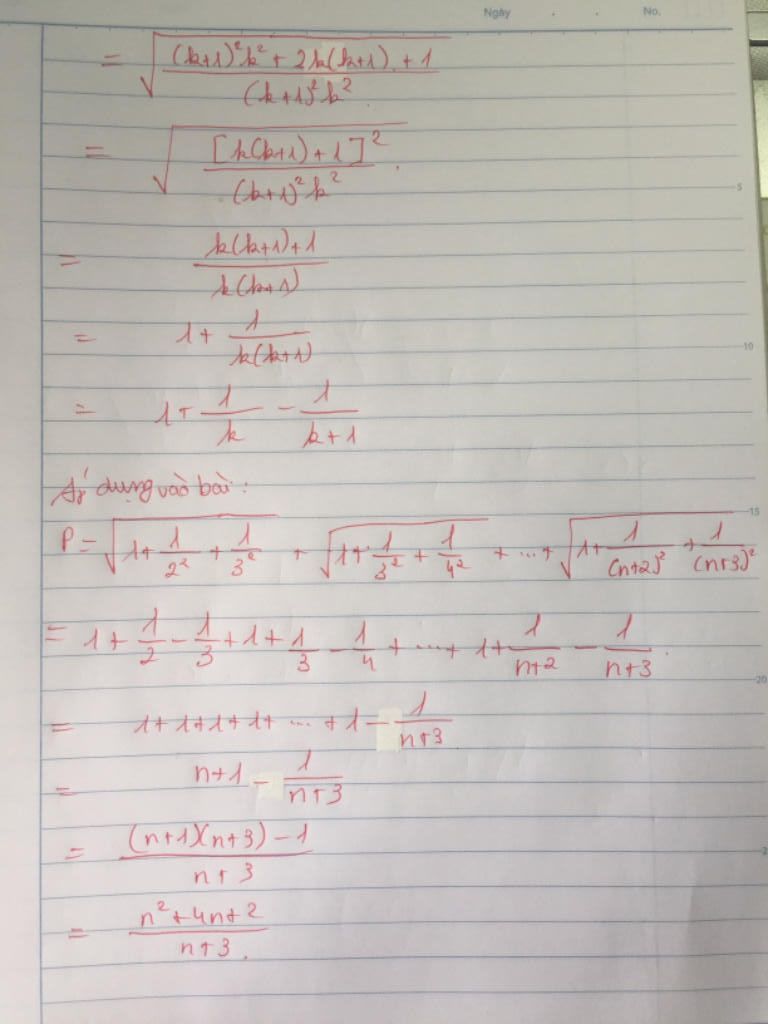 Ngày . . No.
= √(((k+1)²k² + 2k(k+1) + 1)/((k+1)²k²))
= √([k(k+1)+1]²/((k+1)²k²)).
5
= (k(k+1)+1)/(k(k+1))
= 1 + 1/(k(k+1))
10
= 1 + 1/k - 1/(k+1)
dụng vào bài:
15
P = √(1 + 1/2² + 1/3²) + √(1 + 1/3² + 1/4²) + ... + √(1 + 1/(n+2)² + 1/(n+3)²)
= 1 + 1/2 - 1/3 + 1 + 1/3 - 1/4 + ... + 1 + 1/(n+2) - 1/(n+3).
20
= 1+1+1+1+ ... +1 - 1/(n+3)
= n+1 - 1/(n+3)
= ((n+1)(n+3) - 1)/(n+3)
= (n²+4n+2)/(n+3).